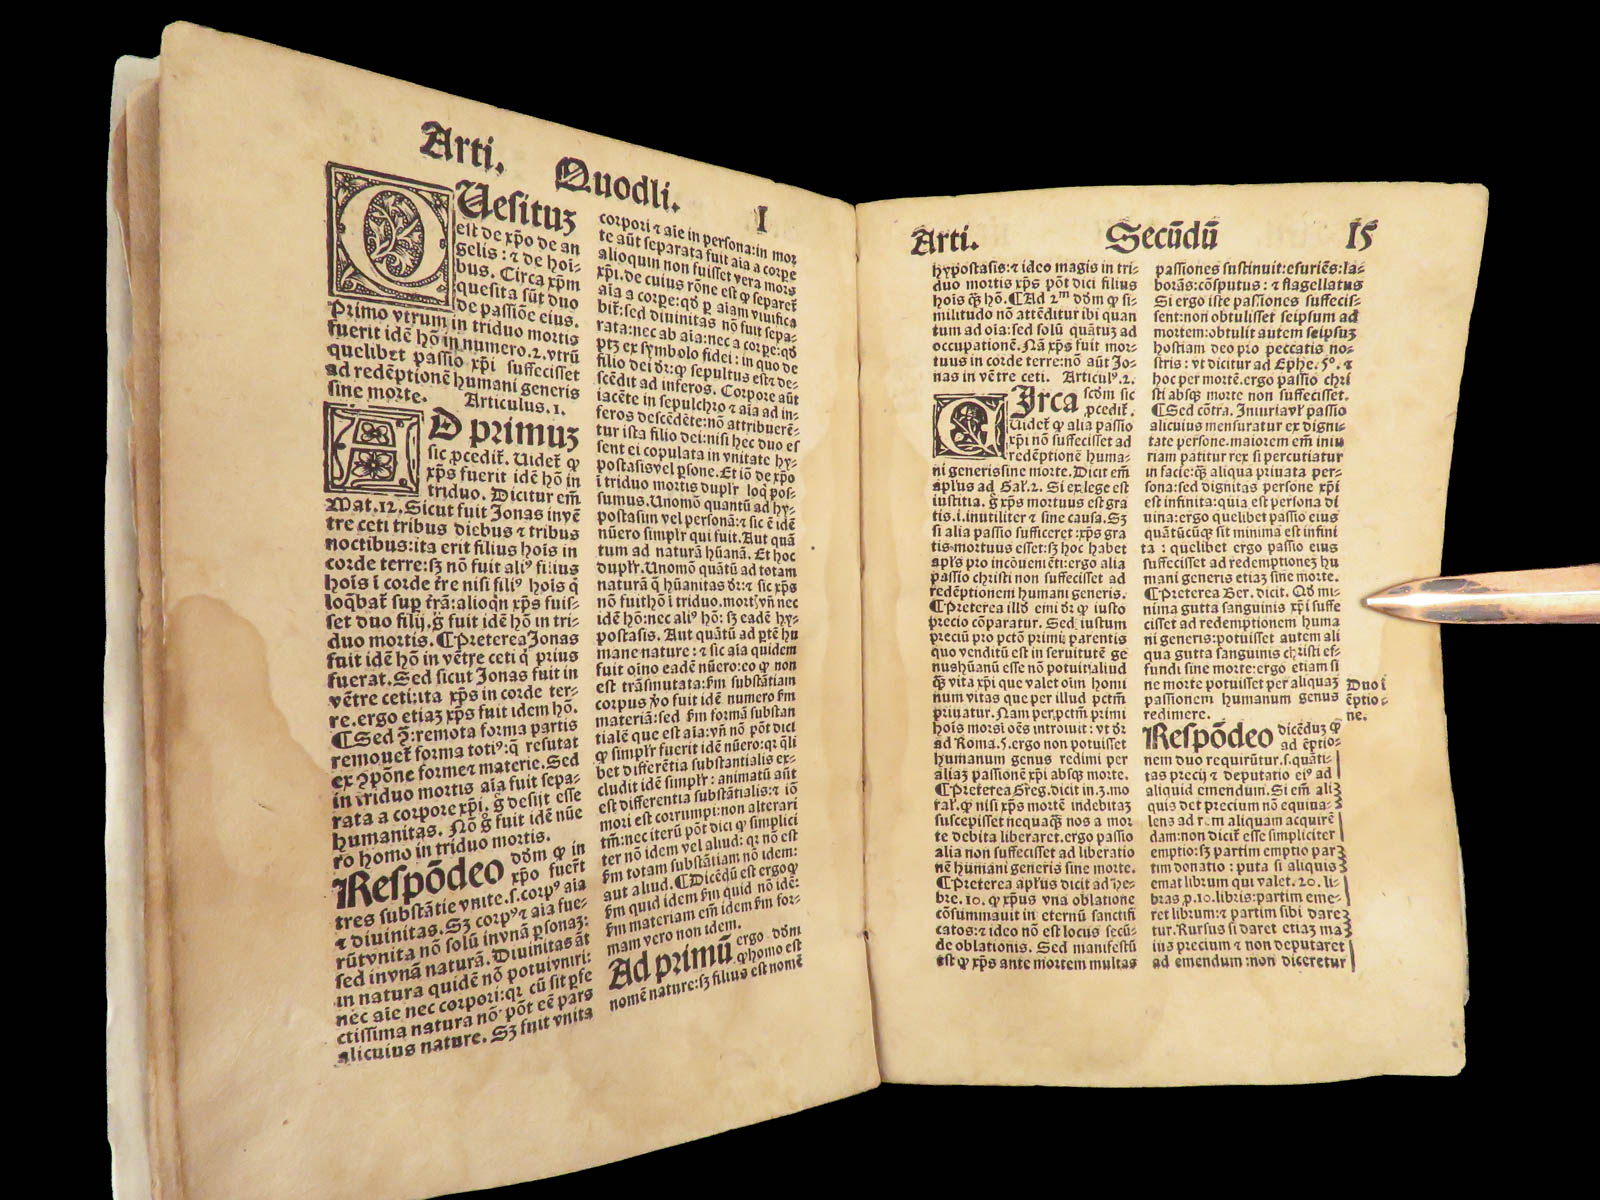 Arti. Quodli. I
QUesituʒ
est de xp̄o de an
gelis : ⁊ de hoi-
bus. Circa xp̄m
quesita sūt duo
de passiōe eius.
Primo vtrum in triduo mortis
fuerit idē hō in numero. 2. vtrū
quelibet passio xp̄i suffecisset
ad redēptionē humani generis
sine morte. Articulus. 1.
AD primuʒ
sic ꝓcedit̄. Uidet̄ ꝙ
xp̄s fuerit idē hō in
triduo. Dicitur em̄
Mat. 12. Sicut fuit Jonas invē
tre ceti tribus diebus ⁊ tribus
noctibus: ita erit filius hoīs in
corde terre: sꝫ nō fuit aliꝰ filius
hoīs ī corde tr̄e nisi filiꝰ hoīs q̄
loq̄bat̄ sup̄ tr̄ā: alioqn̄ xp̄s fuis-
set duo filij. ḡ fuit idē hō in tri-
duo mortis. ¶Preterea Jonas
fuit idē hō in vētre ceti q̄ prius
fuerat. Sed sicut Jonas fuit in
vētre ceti: ita xp̄s in corde ter-
re. ergo etiaꝫ xp̄s fuit idem hō.
¶Sed ꝯ̄: remota forma partis
remouet̄ forma totiꝰ: q̄ resutat
ex ꝯpōne forme ⁊ materie. Sed
in triduo mortis aīa fuit sepa-
rata a corpore xp̄i. ḡ desijt esse
humanitas. Nō ḡ fuit idē nūe
ro homo in triduo mortis.
Respōdeo dōm ꝙ in
xp̄o fuer̄t
tres substātie vnite. s. corpꝰ aīa
⁊ diuinitas. Sꝫ corpꝰ ⁊ aīa fue-
rūt vnita nō solū in vnā ꝑsonaꝫ:
sed in vnā naturā. Diuinitas āt
in natura quidē nō potuit vniri:
nec aīe nec corpori: qꝛ cū sit ꝑfe
ctissima natura nō pōt eē pars
alicuius nature. Sꝫ fuit vnita
corpori ⁊ aīe in persona: in mor
te aūt separata fuit aīa a corpe
alioquin non fuisset vera mors
xp̄i. de cuius rōne est ꝙ separet̄
aīa a corpe: qđ ꝑ aīam viuifica
bit̄: sed diuinitas nō fuit sepa-
rata: nec ab aīa: nec a corpe: qđ
ptꝫ ex symbolo fidei: in quo de
filio dei dr̄: ꝙ sepultus est ⁊ de-
scēdit ad inferos. Corpore aūt
iacēte in sepulchro ⁊ aīa ad in-
feros descēdēte: nō attribuerē-
tur ista filio dei: nisi hec duo es
sent ei copulata in vnitate hy-
postasis vel ꝑsone. Et iō de xp̄o
ī triduo mortis dupl̄r loq̄ pos-
sumus. Uno mō quantū ad hy-
postasim vel personā: ⁊ sic ē idē
nūero simpl̄r qui fuit. Aut quā
tum ad naturā hūanā. Et hoc
dupl̄r. Uno mō quātū ad totam
naturā q̄ hūanitas dr̄: ⁊ sic xp̄s
nō fuit hō ī triduo. mort. vn̄ nec
idē hō: nec aliꝰ hō: sꝫ eadē hy-
postasis. Aut quātū ad ꝑtē hu
mane nature: ⁊ sic aīa quidem
fuit oīno eadē nūero: eo ꝙ non
est trāsmutata: f̄m substātiam
corpus ꝟo fuit idē numero f̄m
materiā: sed f̄m formā substan
tialē que est aīa: vn̄ nō pōt dici
ꝙ simpl̄r fuerit idē nūero: qꝛ q̄li
bet differētia substantialis ex-
cludit idē simpl̄r: animatū aūt
est differentia substātialis: ⁊ iō
mori est corrumpi: non alterari
tm̄: nec iterū pōt dici ꝙ simplici
ter nō idem vel aliud: qꝛ nō est
f̄m totam substātiam nō idem:
aut aliud. ¶Dicēdū est ergo ꝙ
f̄m quid idem f̄m quid nō idē:
f̄m materiam em̄ idem f̄m for-
mam vero non idem.
Ad primū ergo dōm
ꝙ homo est
nomē nature: sꝫ filius est nomē
Arti. Secūdū 15
hypostasis: ⁊ ideo magis in tri-
duo mortis xp̄s pōt dici filius
hoīs q̄ꝫ hō. ¶Ad 2m dōm ꝙ si-
militudo nō attēditur ibi quan
tum ad oīa: sed solū quātuꝫ ad
occupationē. Nā xp̄s fuit mor-
tuus in corde terre: nō aūt Jo-
nas in vētre ceti. Articulꝰ. 2.
CIrca scd̄m sic
ꝓcedit̄.
Uidet̄ ꝙ alia passio
xp̄i nō suffecisset ad
redēptionē huma-
ni generis sine morte. Dicit em̄
apl̄us ad Gal̄. 2. Si ex lege est
iustitia. ḡ xp̄s mortuus est gra
tis. i. inutiliter ⁊ sine causa. Sꝫ
si alia passio sufficeret: xp̄s gra
tis mortuus esset: sꝫ hoc habet
apl̄s pro incōueniēti: ergo alia
passio christi non suffecisset ad
redēptionem humani generis.
¶Preterea illđ emi dr̄ ꝙ iusto
precio cōparatur. Sed iustum
preciū pro pctō primi parentis
quo venditū est in seruitutē ge
nus hūanū esse nō potuit aliud
q̄ꝫ vita xp̄i que valet oīm homi
num vitas que per illud pctm̄
priuatur. Nam per pctm̄ primi
hoīs mors ī oēs introiuit : vt dr̄
ad Roma. 5. ergo non potuisset
humanum genus redimi per
aliaꝫ passionē xp̄i absqꝫ morte.
¶Preterea Greg. dicit in. 3. mo
ral̄. ꝙ nisi xp̄s mortē indebitaꝫ
suscepisset nequaq̄ꝫ nos a mor
te debita liberaret. ergo passio
alia non suffecisset ad liberatio
nē humani generis sine morte.
¶Preterea apl̄us dicit ad he-
bre. 10. ꝙ xp̄us vna oblatione
cōsummauit in eternū sanctifi
catos: ⁊ ideo nō est locus secū-
de oblationis. Sed manifestū
est ꝙ xp̄s ante mortem multas
passiones sustinuit: esuriēs: la-
borās: cōsputus : ⁊ flagellatus
Si ergo iste passiones suffecis-
sent: non obtulisset seipsum ad
mortem: obtulit autem seipsuꝫ
hostiam deo pro peccatis no-
stris : vt dicitur ad Ephe. 5°. ⁊
hoc per mortē. ergo passio chri
sti absqꝫ morte non suffecisset.
¶Sed cōtra. Iniuria vl̄ passio
alicuius mensuratur ex digni-
tate persone. maiorem em̄ iniu
riam patitur rex si percutiatur
in facie: q̄ꝫ aliqua priuata per-
sona: sed dignitas persone xp̄i
est infinita: quia est persona di
uina: ergo quelibet passio eius
quātūcūqꝫ sit minima est infini
ta : quelibet ergo passio eius
suffecisset ad redemptionez hu
mani generis etiaꝫ sine morte.
¶Preterea Ber. dicit. Qđ mi-
nima gutta sanguinis xp̄i suffe
cisset ad redemptionem huma
ni generis: potuisset autem ali
qua gutta sanguinis christi ef-
fundi sine morte: ergo etiam si
ne morte potuisset per aliquaꝫ
passionem humanum genus
redimere.
Duo ī
ēptio-
ne.
Respōdeo dicēduꝫ ꝙ
ad ēptio-
nem duo requirūtur. s. quāti-
tas precij ⁊ deputatio eiꝰ ad
aliquid emendum. Si em̄ ali
quis det precium nō equiua-
lens ad rem aliquam acquirē
dam: non dicit̄ esse simpliciter
emptio: sꝫ partim emptio par
tim donatio : puta si aliquis
emat librum qui valet. 20. li-
bras ꝓ. 10. libris: partim eme-
ret librum: ⁊ partim sibi daret̄
tur. Rursus si daret etiaꝫ ma
ius precium ⁊ non deputaret
ad emendum : non diceretur